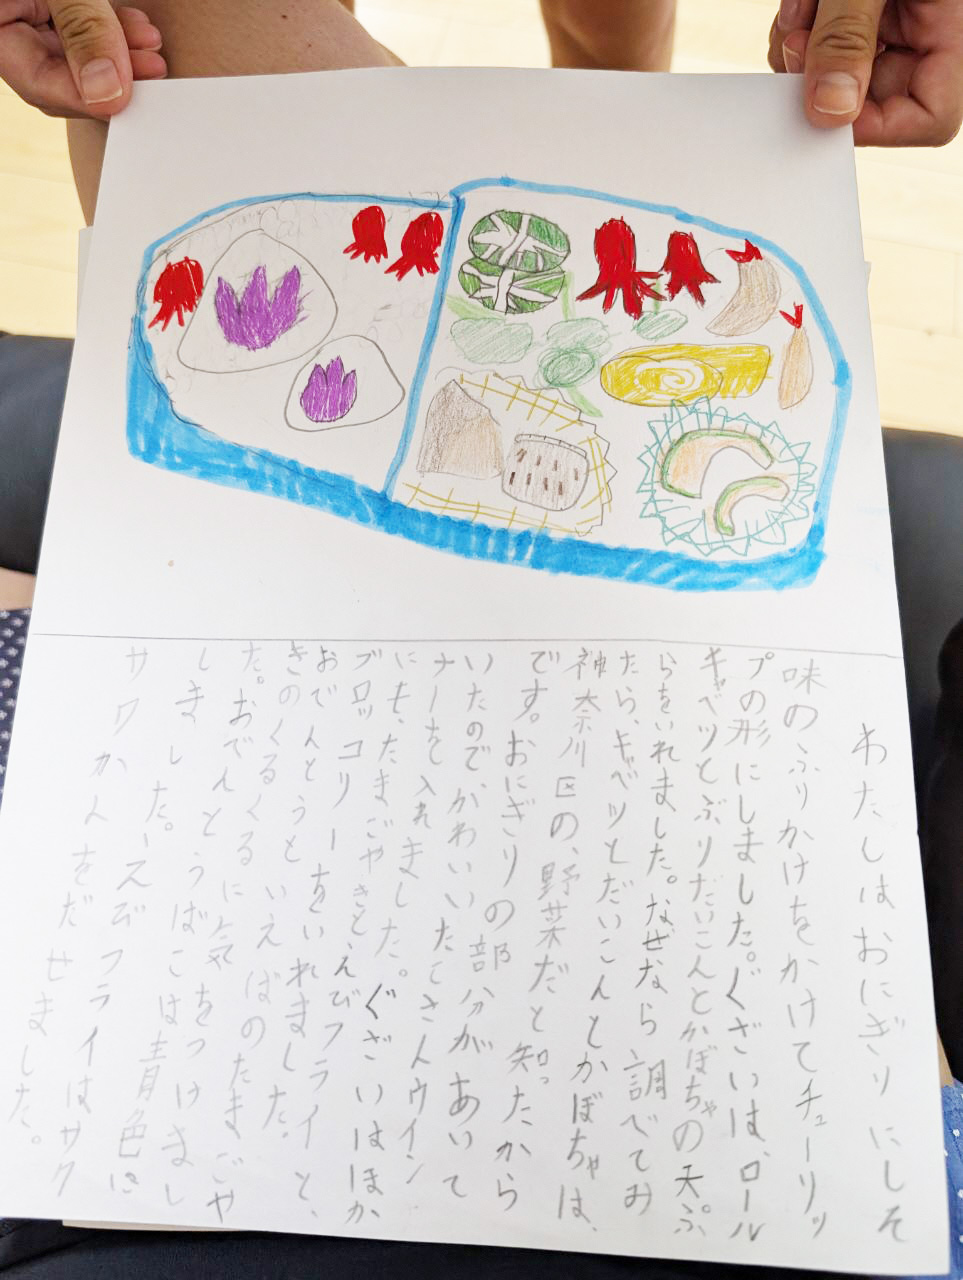 わたしはおにぎりにしそ
味のふりかけをかけてチューリッ
プの形にしました。ぐざいは、ロール
キャベツとぶりだいこんとかぼちゃの天ぷ
らをいれました。なぜなら調べてみ
たら、キャベツとだいこんとかぼちゃは、
神奈川区の、野菜だと知ったから
です。おにぎりの部分があいて
いたので、かわいいたこさんウイン
ナーを入れました。ぐざいはほか
にも、たまごやきと、えびフライと、
ブロッコリーをいれました。
おべんとうといえばのたまごや
きのくるくるに気をつけまし
た。おべんとうばこは青色に
しました。えびフライはサク
サクかんをだせました。